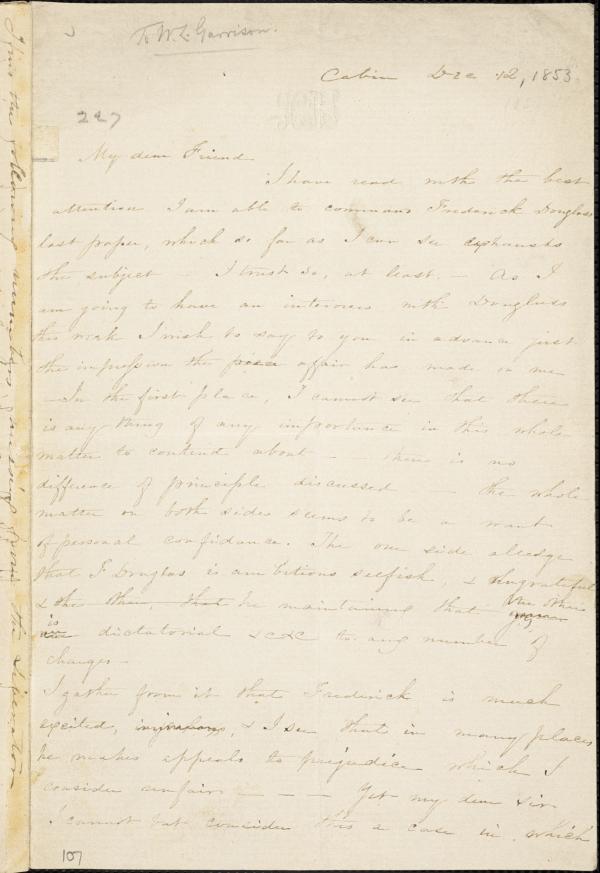 To W. L. Garrison.
Cabin Dec 12, 1853
227
My dear Friend
I have read with the best
attention I am able to command Frederick Douglass
last paper, which so far as I can see exphausts
the subject — I trust so, at least. — As I
am going to have an interview with Douglass
this week I wish to say to you in advance just
the impression the affair has made on me
— In the first place, I cannot see that there
is any thing of any importance in this whole
matter to contend about — — there is no
difference of principle discussed — the whole
matter on both sides seems to be a want
of personal confidance. The one side alledge
that F Douglas is ambitious selfish, & ungrateful
& the other, that he maintaining that the other
is dictatorial &c &c to any number of
charges —
I gather from it that Frederick is much
excited, & I see that in many places
he makes appeals to prejudice which I
consider unfair — — — Yet my dear Sir
I cannot but consider this a case in which
107
the following numbers, missing from the Liberator